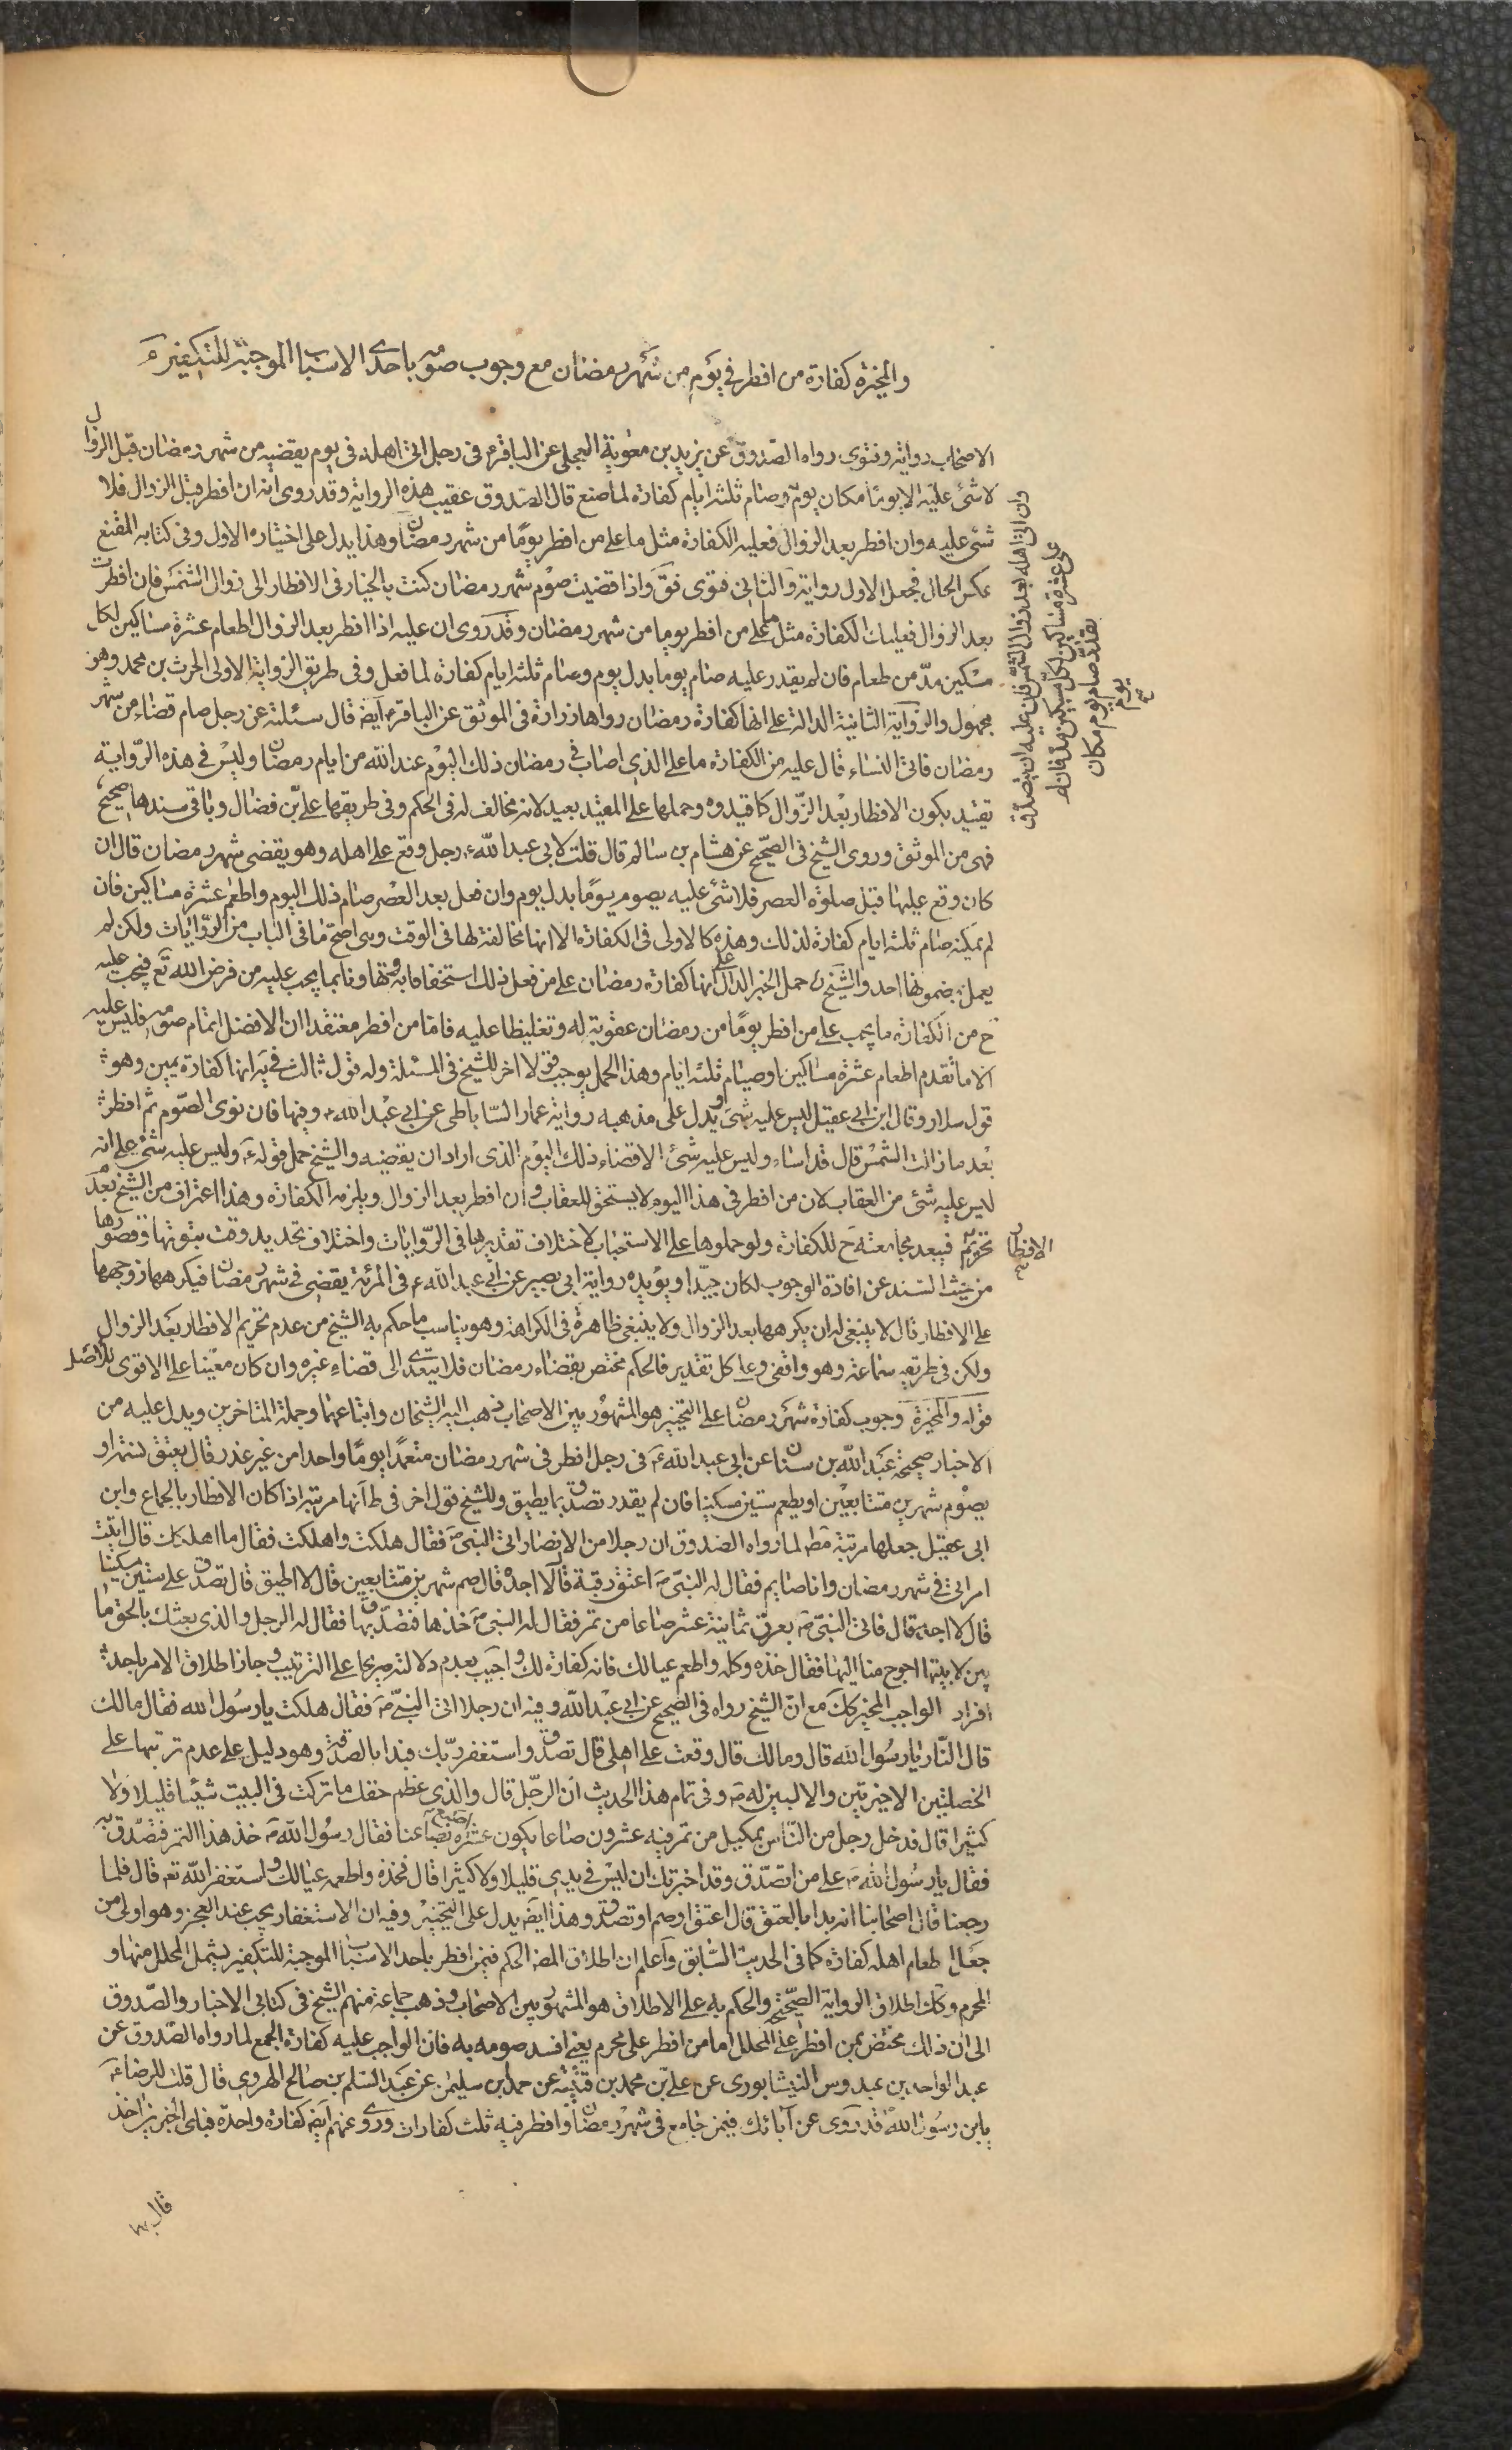 والمخيرة كفارة من افطر في يوم من شهر رمضان مع وجوب صومه باحدى الاسباب الموجبة للتكفير
الاصحاب رواية وفتوى رواه الصدوق عن بريد بن معوية العجلي عن الباقر في رجل اتى اهله في يوم يقضيه من شهر رمضان قبل الزوال
لا شئ عليه الا يوما مكان يوم وصام ثلثة ايام كفارة لما صنع قال الصدوق عقيب هذه الرواية وقد روى انه ان افطر قبل الزوال فلا
شئ عليه وان افطر بعد الزوال فعليه الكفارة مثل ما على من افطر يوما من شهر رمضان وهذا يدل على اختياره الاول وفى كتابه المقنع
عكس الحال فجعل الاول رواية والثاني فتوى فق واذا قضيت صوم شهر رمضان كنت بالخيار فى الافطار الى زوال الشمس فان افطرت
بعد الزوال فعليك الكفارة مثل ما على من افطر يوما من شهر رمضان وقد روى ان عليه اذا افطر بعد الزوال اطعام عشرة مساكين لكل
مسكين مد من طعام فان لم يقدر عليه صام يوما بدل يوم وصام ثلثة ايام كفارة لما فعل وفى طريق الرواية الاولى الحرث بن محمد وهو
مجهول والرواية الثانية الدالة على انها كفارة رمضان رواها زرارة فى الموثق عن الباقر ايضا قال سئلته عن رجل صام قضاء من شهر
رمضان فاتى النساء قال عليه من الكفارة ما على الذى اصاب فى رمضان ذلك اليوم عند الله من ايام رمضان وليس فى هذه الرواية
تقييد بكون الافطار بعد الزوال كما قيدوه وحملها على المقيد بعيد لانه مخالف له فى الحكم وفى طريقها على بن فضال وباقى سندها صحيح
فهى من الموثق وروى الشيخ فى الصحيح عن هشام بن سالم قال قلت لابى عبد الله رجل وقع على اهله وهو يقضى شهر رمضان قال ان
كان وقع عليها قبل صلوة العصر فلا شئ عليه يصوم يوما بدل يوم وان فعل بعد العصر صام ذلك اليوم واطعم عشرة مساكين فان
لم يمكنه صام ثلثة ايام كفارة لذلك وهذه كالاولى فى الكفارة الا انها مخالفة لها فى الوقت وهى اصح ما فى الباب من الروايات ولكن لم
يعمل بمضمونها احد والشيخ حمل الخبر الدال على انها كفارة رمضان على من فعل ذلك استخفافا به وتهاونا بما يجب عليه من فرض الله تع فيجب عليه
ح من الكفارة ما يجب على من افطر يوما من رمضان عقوبة له وتغليظا عليه فاما من افطر معتقدا ان الافضل اتمام صومه فليس عليه
الا ما تقدم اطعام عشرة مساكين او صيام ثلثة ايام وهذا الحمل يوجب قولا اخر للشيخ فى المسئلة وله قول ثالث فى يه انها كفارة يمين وهو
قول سلار وقال ابن ابى عقيل ليس عليه شئ ويدل على مذهبه رواية عمار الساباطى عن ابى عبد الله وفيها فان نوى الصوم ثم افطر
بعد ما زالت الشمس قال قد اساء وليس عليه شئ الا قضاء ذلك اليوم الذى اراد ان يقضيه والشيخ حمل قوله وليس عليه شئ على انه
ليس عليه شئ من العقاب لان من افطر فى هذا اليوم لا يستحق العقاب وان افطر بعد الزوال ويلزمه الكفارة وهذا اعتراف من الشيخ بعدم
تحريم الافطار فيبعد مجامعته ح للكفارة ولو حملوها على الاستحباب لاختلاف تقديرها فى الروايات واختلاف تحديد وقت ثبوتها وقصورها
من حيث السند عن افادة الوجوب لكان جيدا ويؤيده رواية ابى بصير عن ابى عبد الله فى المرئة يقضى فى شهر رمضان فيكرهها زوجها
على الافطار قال لا ينبغى له ان يكرهها بعد الزوال ولا ينبغى ظاهرة فى الكراهة وهو يناسب ما حكم به الشيخ من عدم تحريم الافطار بعد الزوال
ولكن فى طريقه سماعة وهو واقفى وعلى كل تقدير فالحكم مختص بقضاء رمضان فلا يتعدى الى قضاء غيره وان كان معينا على الاقوى للاصل
قوله والمخيرة وجوب كفارة شهر رمضان على التخيير هو المشهور بين الاصحاب ذهب اليه الشيخان واتباعهما وجملة المتاخرين ويدل عليه من
الاخبار صحيحة عبد الله بن سنان عن ابى عبد الله فى رجل افطر فى شهر رمضان متعمدا يوما واحدا من غير عذر قال يعتق نسمة او
يصوم شهرين متتابعين او يطعم ستين مسكينا فان لم يقدر تصدق بما يطيق وللشيخ قول اخر فى ط انها مرتبة اذا كان الافطار بالجماع وابن
ابى عقيل جعلها مرتبة مط لما رواه الصدوق ان رجلا من الانصار اتى النبى فقال هلكت واهلكت فقال ما اهلكك قال اتيت
امراتى فى شهر رمضان وانا صايم فقال له النبى اعتق رقبة قال لا اجد قال صم شهرين متتابعين قال لا اطيق قال تصدق على ستين مسكينا
قال لا اجد قال فاتى النبى بعرق ثمانية عشر صاعا من تمر فقال له النبى خذها فتصدق بها فقال له الرجل والذى بعثك بالحق ما
بين لابيتها احوج منا اليها فقال خذه وكله واطعم عيالك فانه كفارة لك واجيب بعدم دلالته صريحا على الترتيب وجاز اطلاق الامر باحد
افراد الواجب المخير كك مع ان الشيخ رواه فى الصحيح عن ابى عبد الله وفيه ان رجلا اتى النبى فقال هلكت يا رسول الله فقال مالك
قال النار يا رسول الله قال ومالك قال وقعت على اهلى قال تصدق واستغفر ربك فبدا بالصدقة وهو دليل على عدم ترتبها على
الخصلتين الاخيرتين والا لبين له وفى تمام هذا الحديث ان الرجل قال والذى عظم حقك ما تركت فى البيت شيئا قليلا ولا
كثيرا قال فدخل رجل من الناس بمكيل من تمر فيه عشرون صاعا يكون عشرة اصع بصاعنا فقال رسول الله خذ هذا التمر فتصدق به
فقال يا رسول الله على من اتصدق وقد اخبرتك ان ليس فى بيتى قليلا ولا كثيرا قال فخذه واطعمه عيالك واستغفر الله تع قال فلما
رجعنا قال اصحابنا انه بدا بالعتق قال اعتق او صم او تصدق وهذا ايضا يدل على التخيير وفيه ان الاستغفار يجب عند العجز وهو اولى من
جعل اطعام اهله كفارة كما فى الحديث السابق واعلم ان اطلاق المصنف الحكم فيمن افطر باحد الاسباب الموجبة للتكفير يشمل المحلل منها و
المحرم وكك اطلاق الرواية الصحيحة والحكم به على الاطلاق هو المشهور بين الاصحاب وذهب جماعة منهم الشيخ فى كتابى الاخبار والصدوق
الى ان ذلك مختص بمن افطر على المحلل اما من افطر على محرم يعنى افسد صومه به فان الواجب عليه كفارة الجمع لما رواه الصدوق عن
عبد الواحد بن عبدوس النيشابورى عن على بن محمد بن قتيبة عن حمدان بن سليمن عن عبد السلم بن صالح الهروى قال قلت للرضا
يابن رسول الله قد روى عن آبائك فيمن جامع فى شهر رمضان او افطر فيه ثلث كفارات وروى عنهم ايضا كفارة واحدة فباى الخبرين اخذ
قال
وان اتى اهله بعد زوال الشمس فان عليه ان يتصدق
على عشرة مساكين لكل مسكين مد فان لم
يقدر صام يوم مكان
يوم